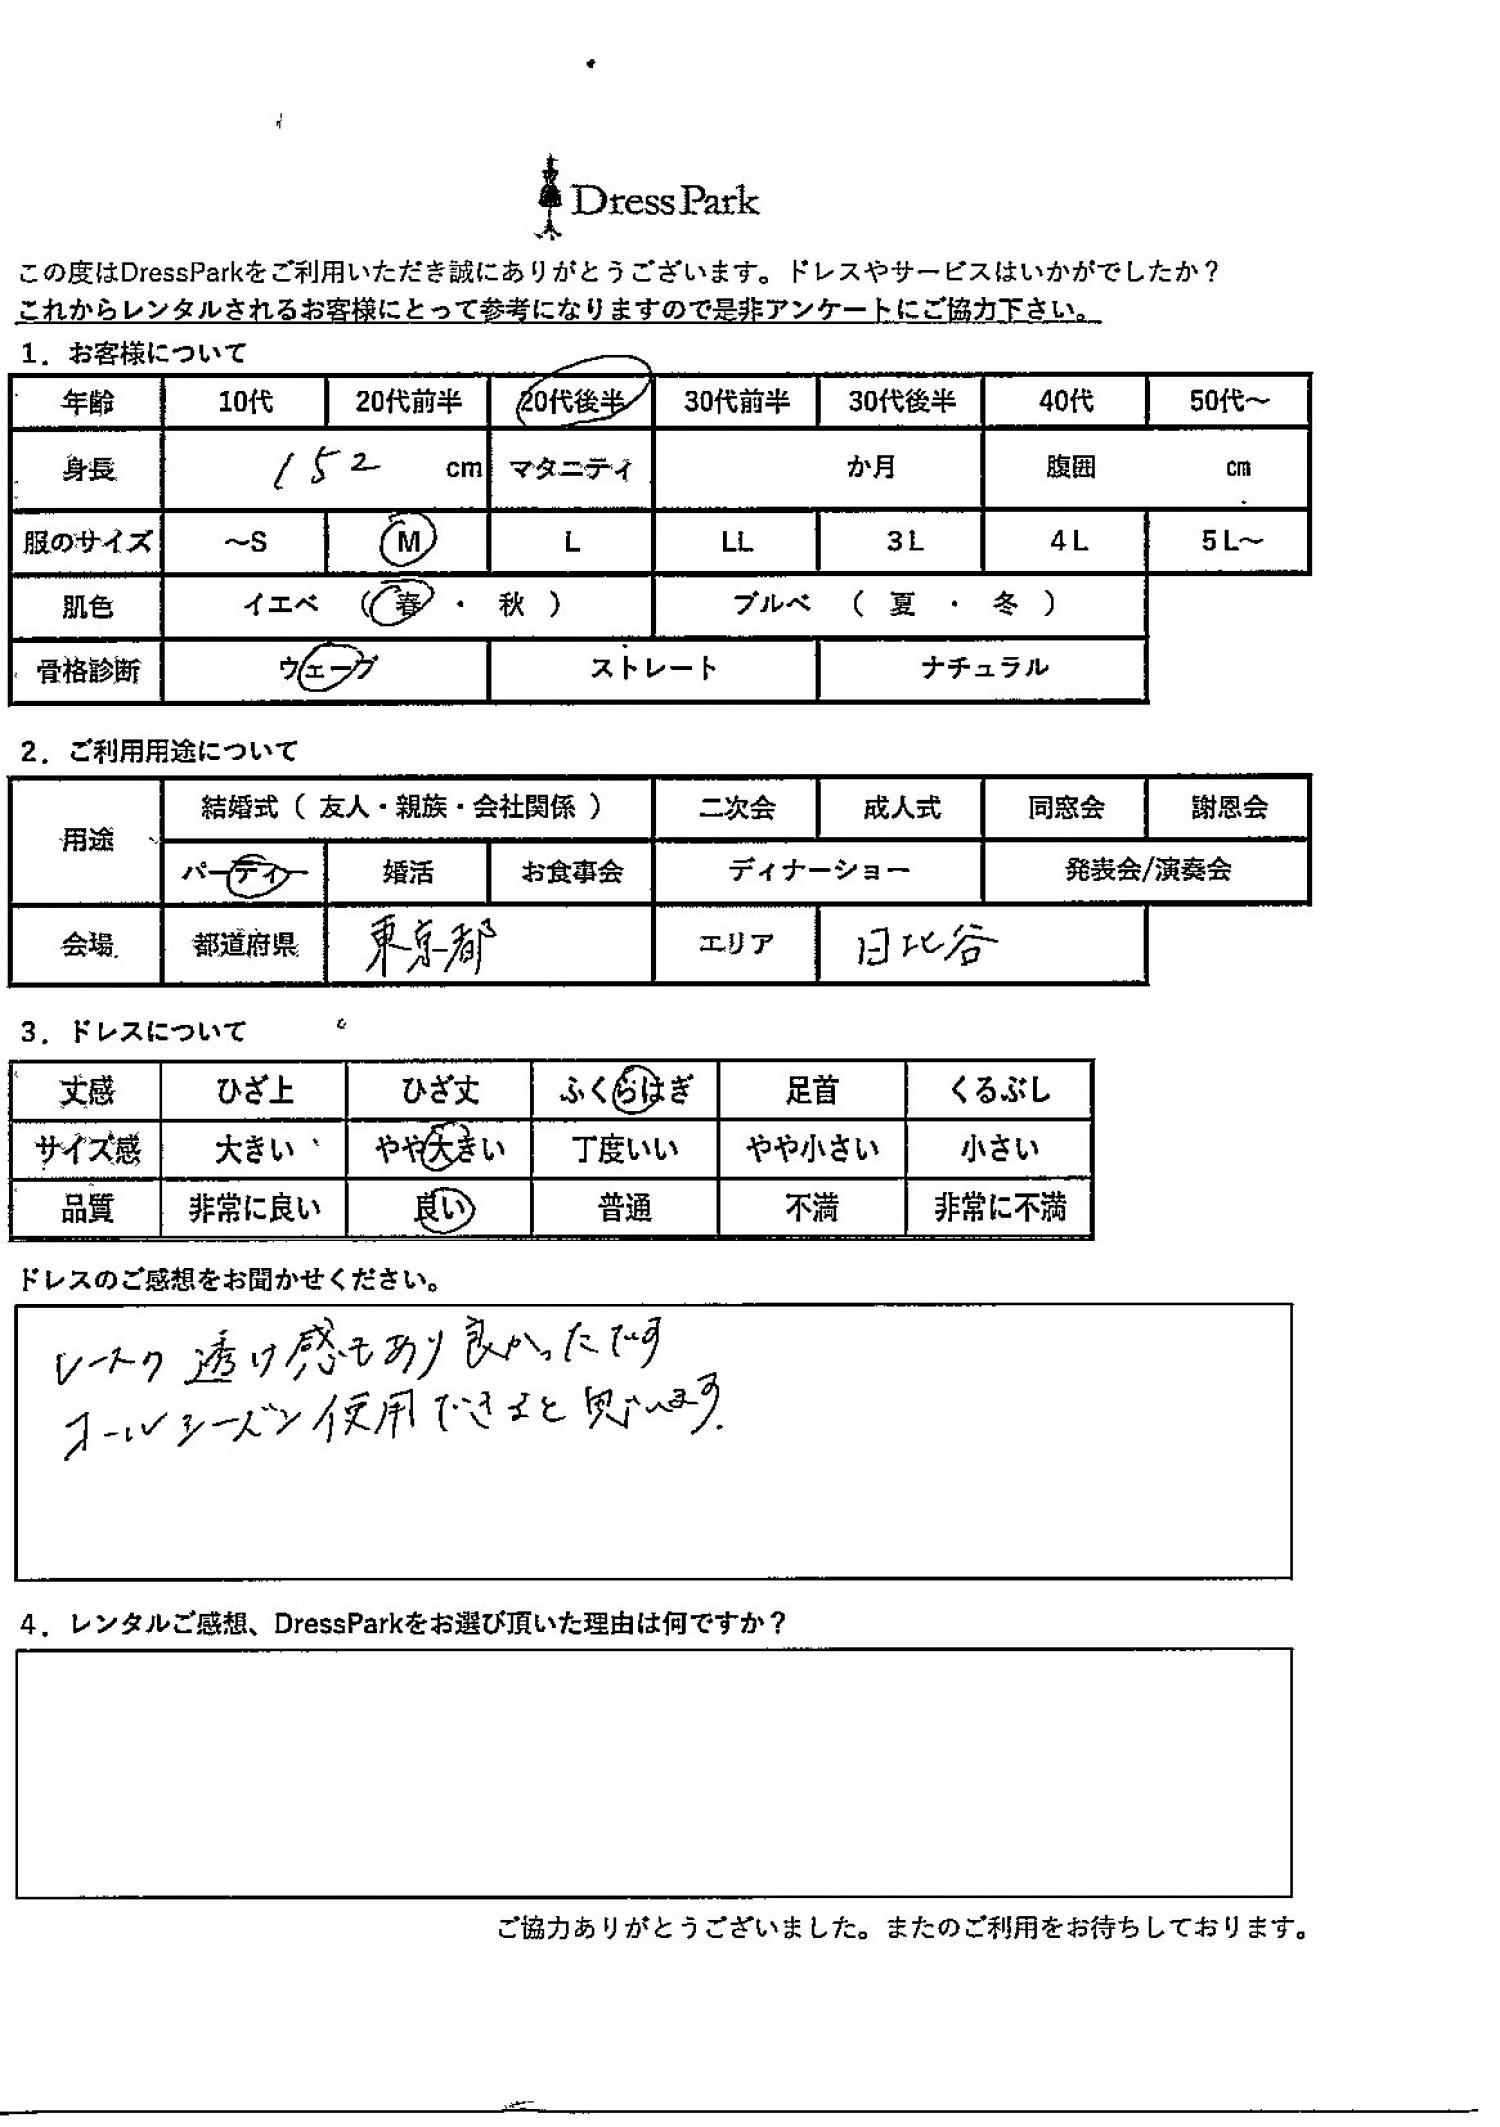 DressPark
この度はDressParkをご利用いただき誠にありがとうございます。ドレスやサービスはいかがでしたか？
これからレンタルされるお客様にとって参考になりますので是非アンケートにご協力下さい。
1．お客様について
年齢 10代 20代前半 20代後半 30代前半 30代後半 40代 50代～
身長 152 cm マタニティ か月 腹囲 cm
服のサイズ ～S M L LL 3L 4L 5L～
肌色 イエベ （ 春 ・ 秋 ） ブルベ （ 夏 ・ 冬 ）
骨格診断 ウェーブ ストレート ナチュラル
2．ご利用用途について
用途 結婚式（ 友人・親族・会社関係 ） 二次会 成人式 同窓会 謝恩会
パーティー 婚活 お食事会 ディナーショー 発表会/演奏会
会場 都道府県 東京都 エリア 日比谷
3．ドレスについて
丈感 ひざ上 ひざ丈 ふくらはぎ 足首 くるぶし
サイズ感 大きい やや大きい 丁度いい やや小さい 小さい
品質 非常に良い 良い 普通 不満 非常に不満
ドレスのご感想をお聞かせください。
レースの透け感もあり良かったです
オールシーズン使用できると思います.
4．レンタルご感想、DressParkをお選び頂いた理由は何ですか？
ご協力ありがとうございました。またのご利用をお待ちしております。